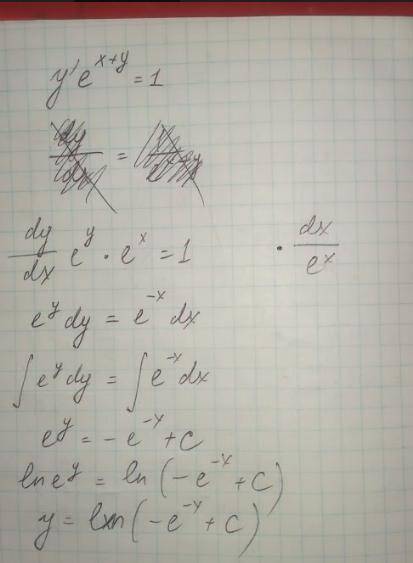 y' e^{x+y} = 1
dy/dx e^y · e^x = 1    · dx/e^x
e^y dy = e^{-x} dx
∫ e^y dy = ∫ e^{-x} dx
e^y = -e^{-x} + C
ln e^y = ln (-e^{-x} + C)
y = ln (-e^{-x} + C)